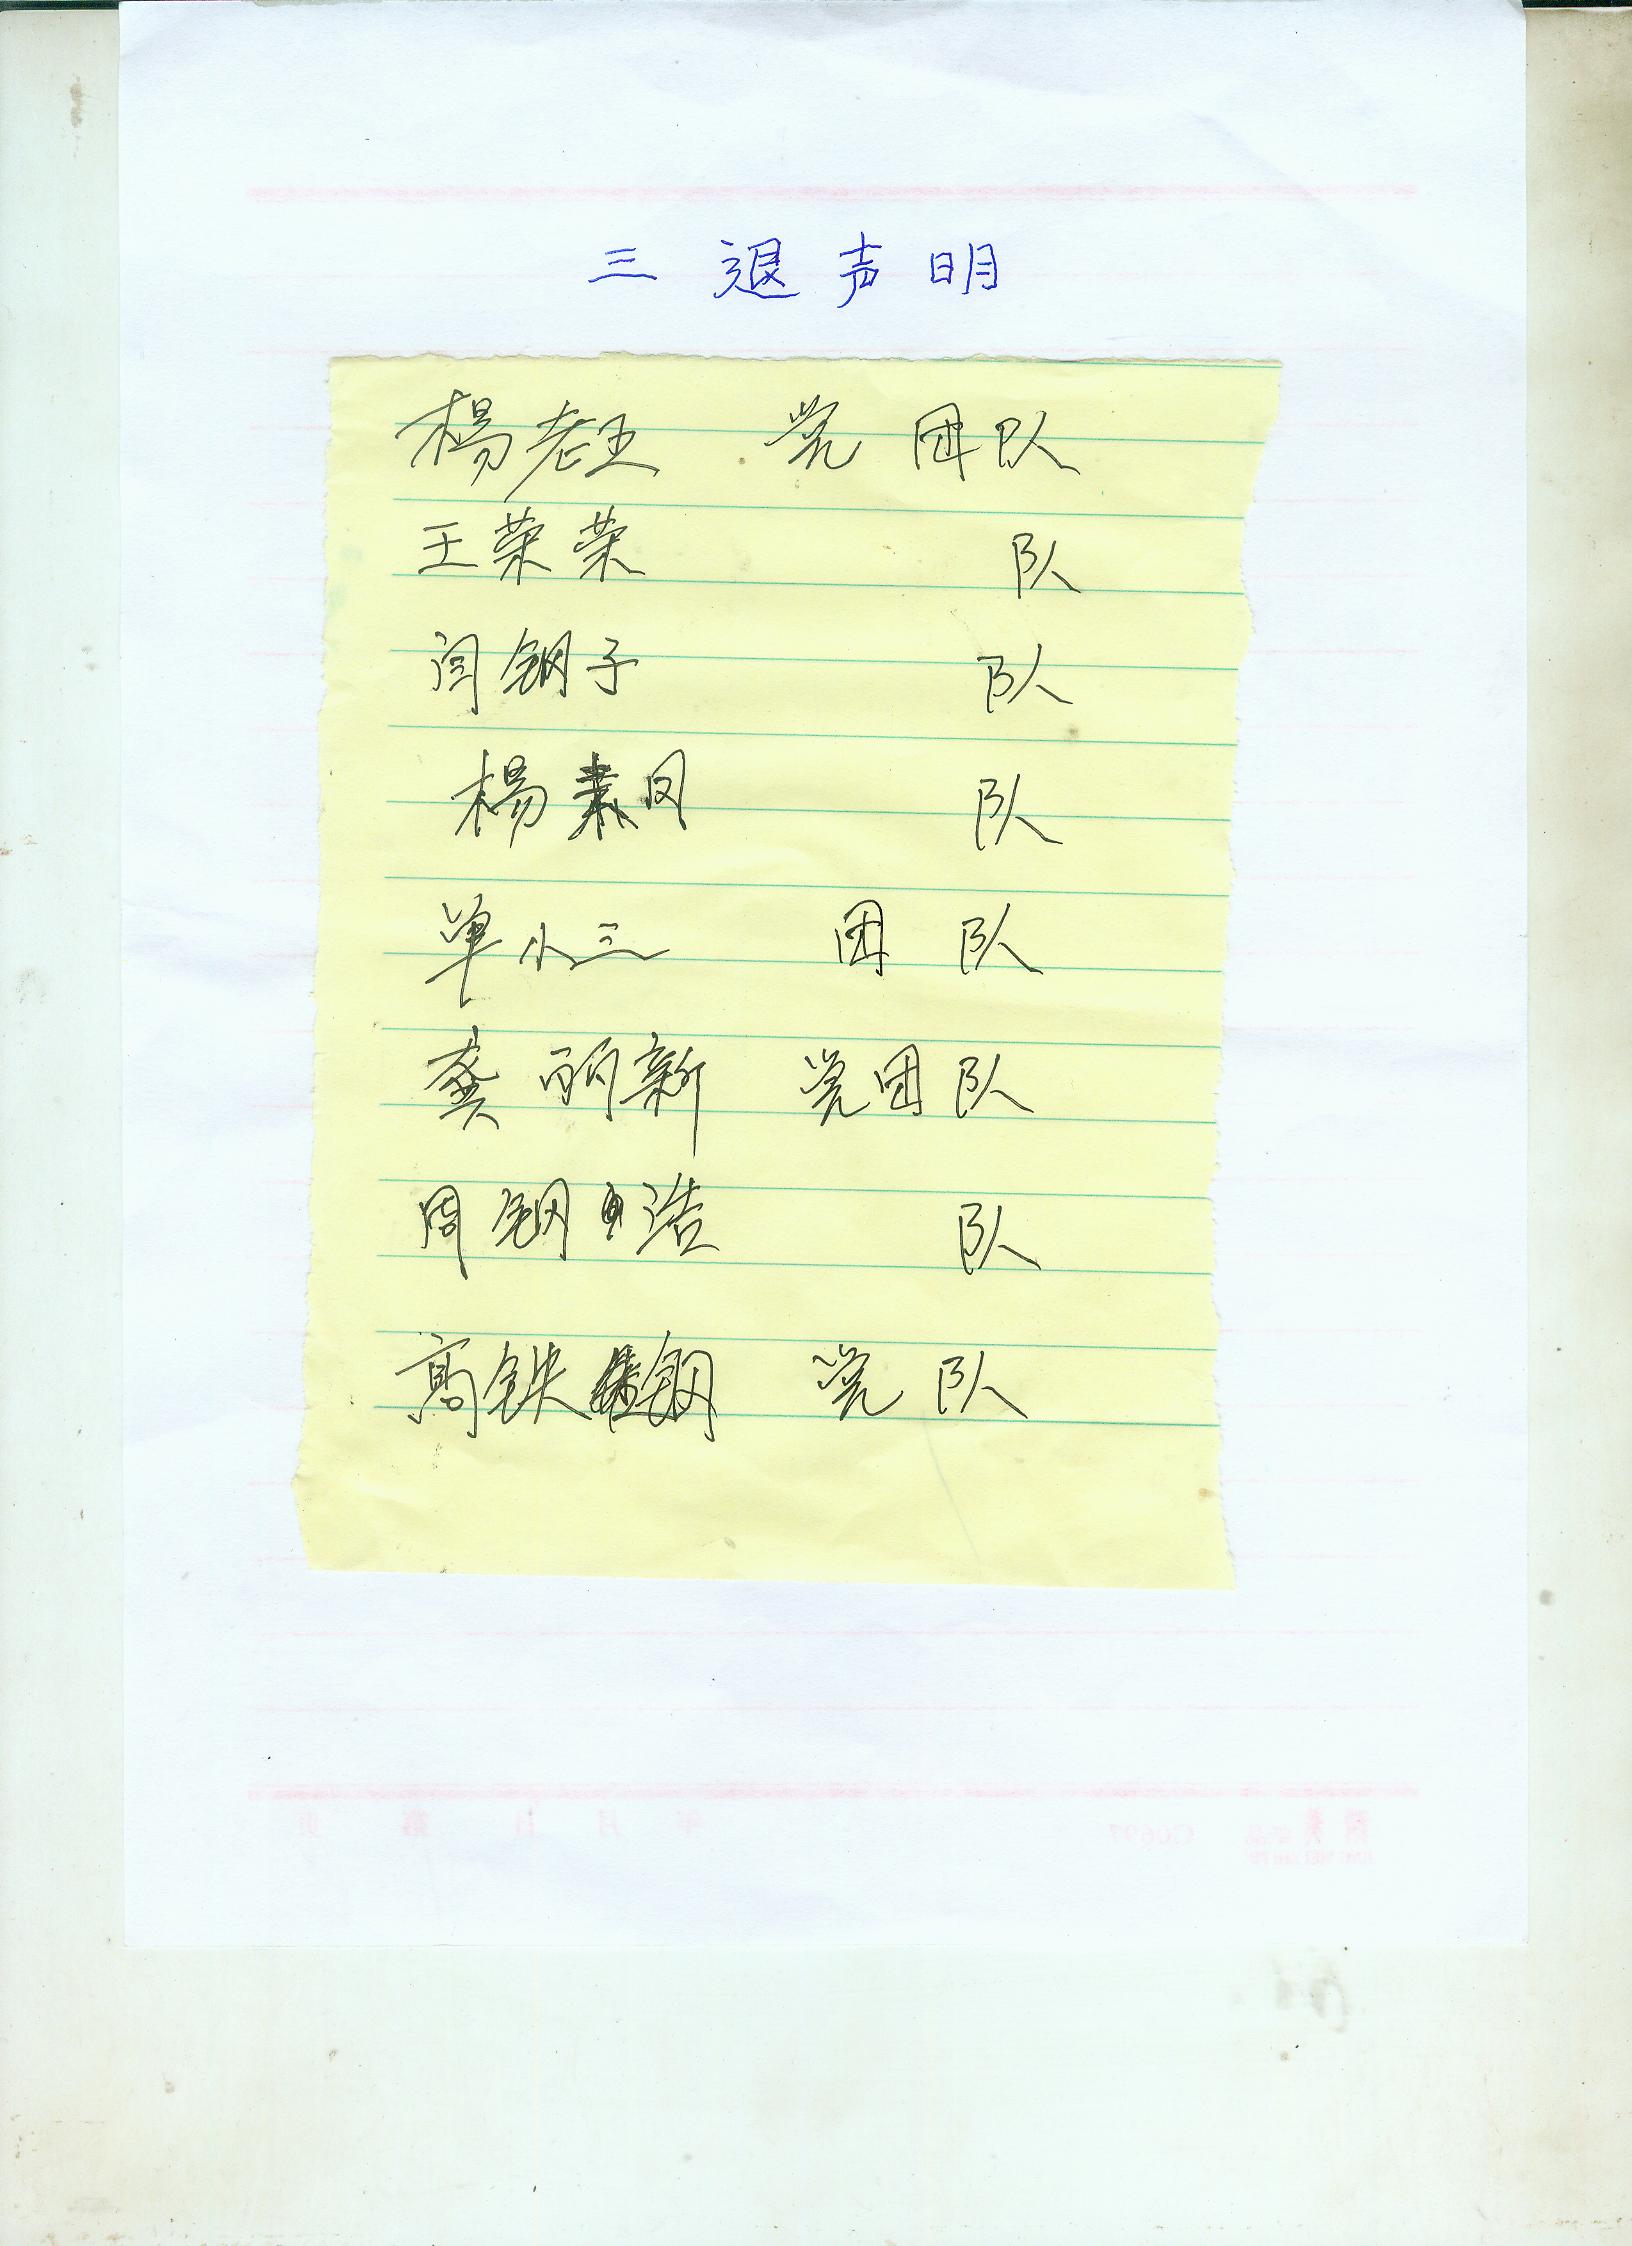 三退声明
楊老五 党 团 队
王荣荣 队
闫钢子 队
楊素凤 队
单小三 团 队
龚丽新 党 团 队
周钢浩 队
高铁钢 党 队
年 月 日 第 页
C0697